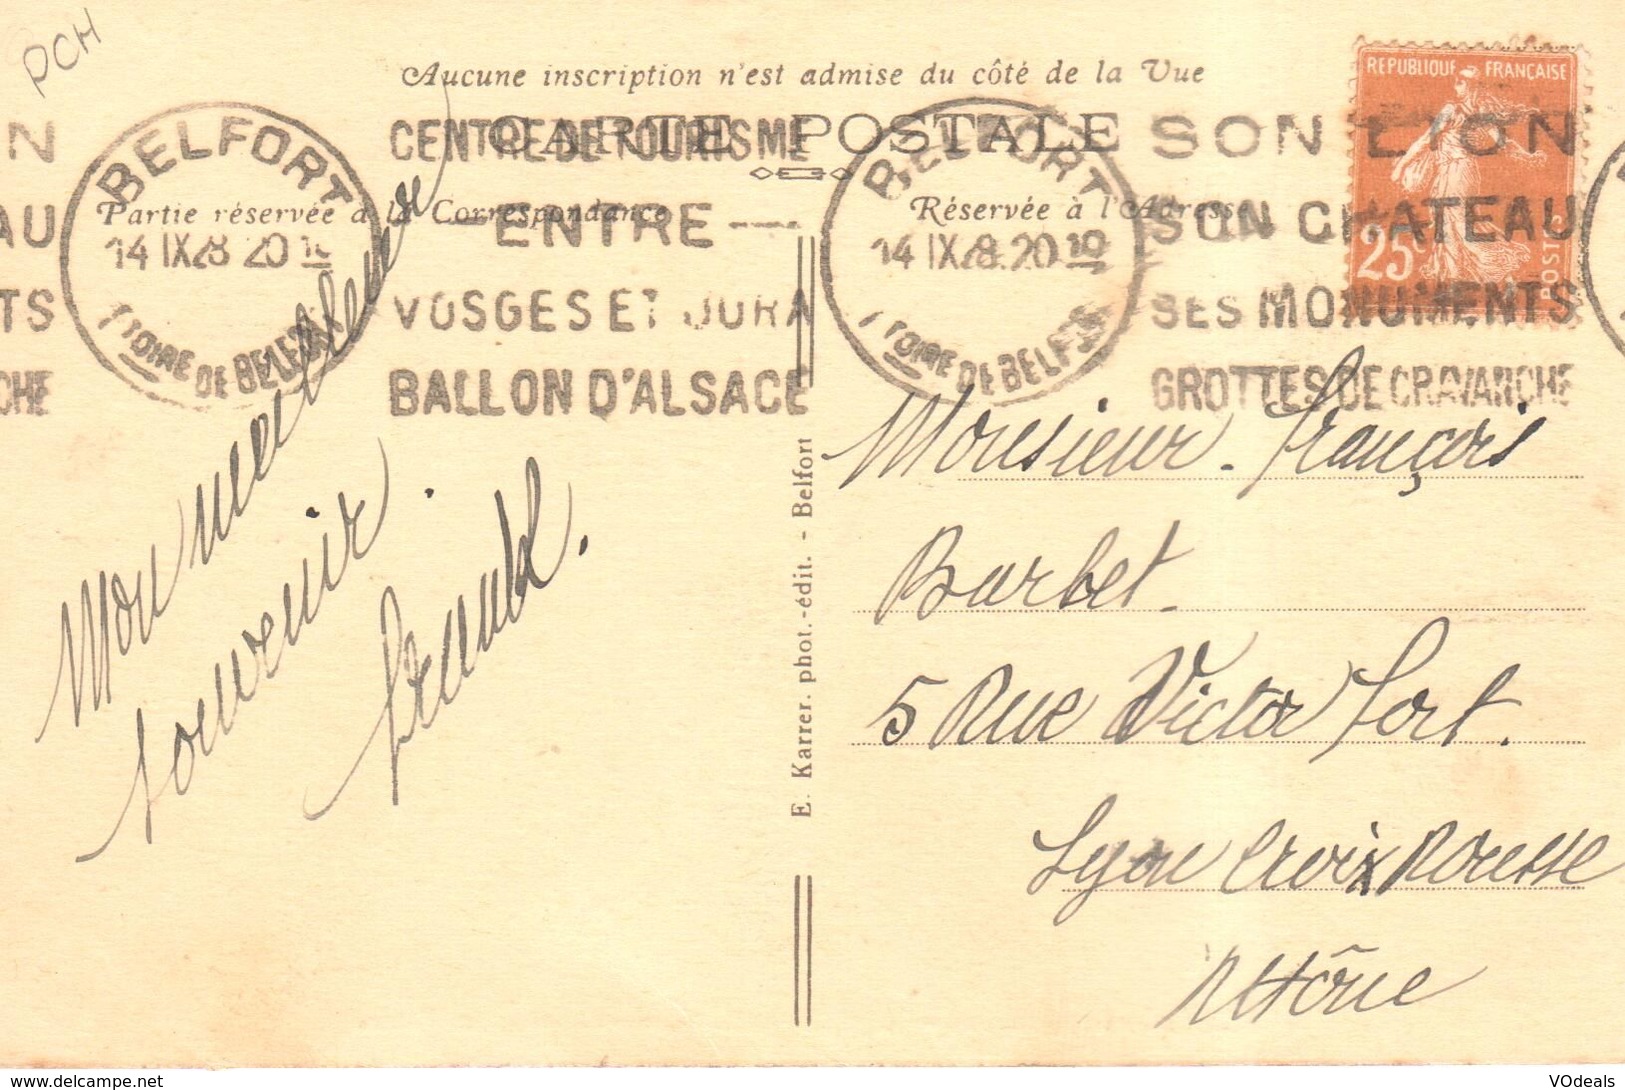 PCH
Aucune inscription n'est admise du côté de la Vue
CARTE POSTALE
Partie réservée à la Correspondance
Réservée à l'Adresse
REPUBLIQUE FRANÇAISE
25c
POSTES
N
AU
TS
CHE
BELFORT
14 IX 28 20 10
TOIRE DE BELFORT
CENTRE DE TOURISME
— ENTRE —
VOSGES ET JURA
BALLON D'ALSACE
BELFORT
14 IX 28. 20 10
TOIRE DE BELFORT
SON LION
SON CHATEAU
SES MONUMENTS
GROTTES DE CRAVANCHE
Mon meilleur
souvenir.
E. Karrer. phot.-édit. - Belfort
Monsieur François
Barbet
5 Rue Victor Fort.
Lyon Croix Rousse
Rhône
VOdeals
www.delcampe.net